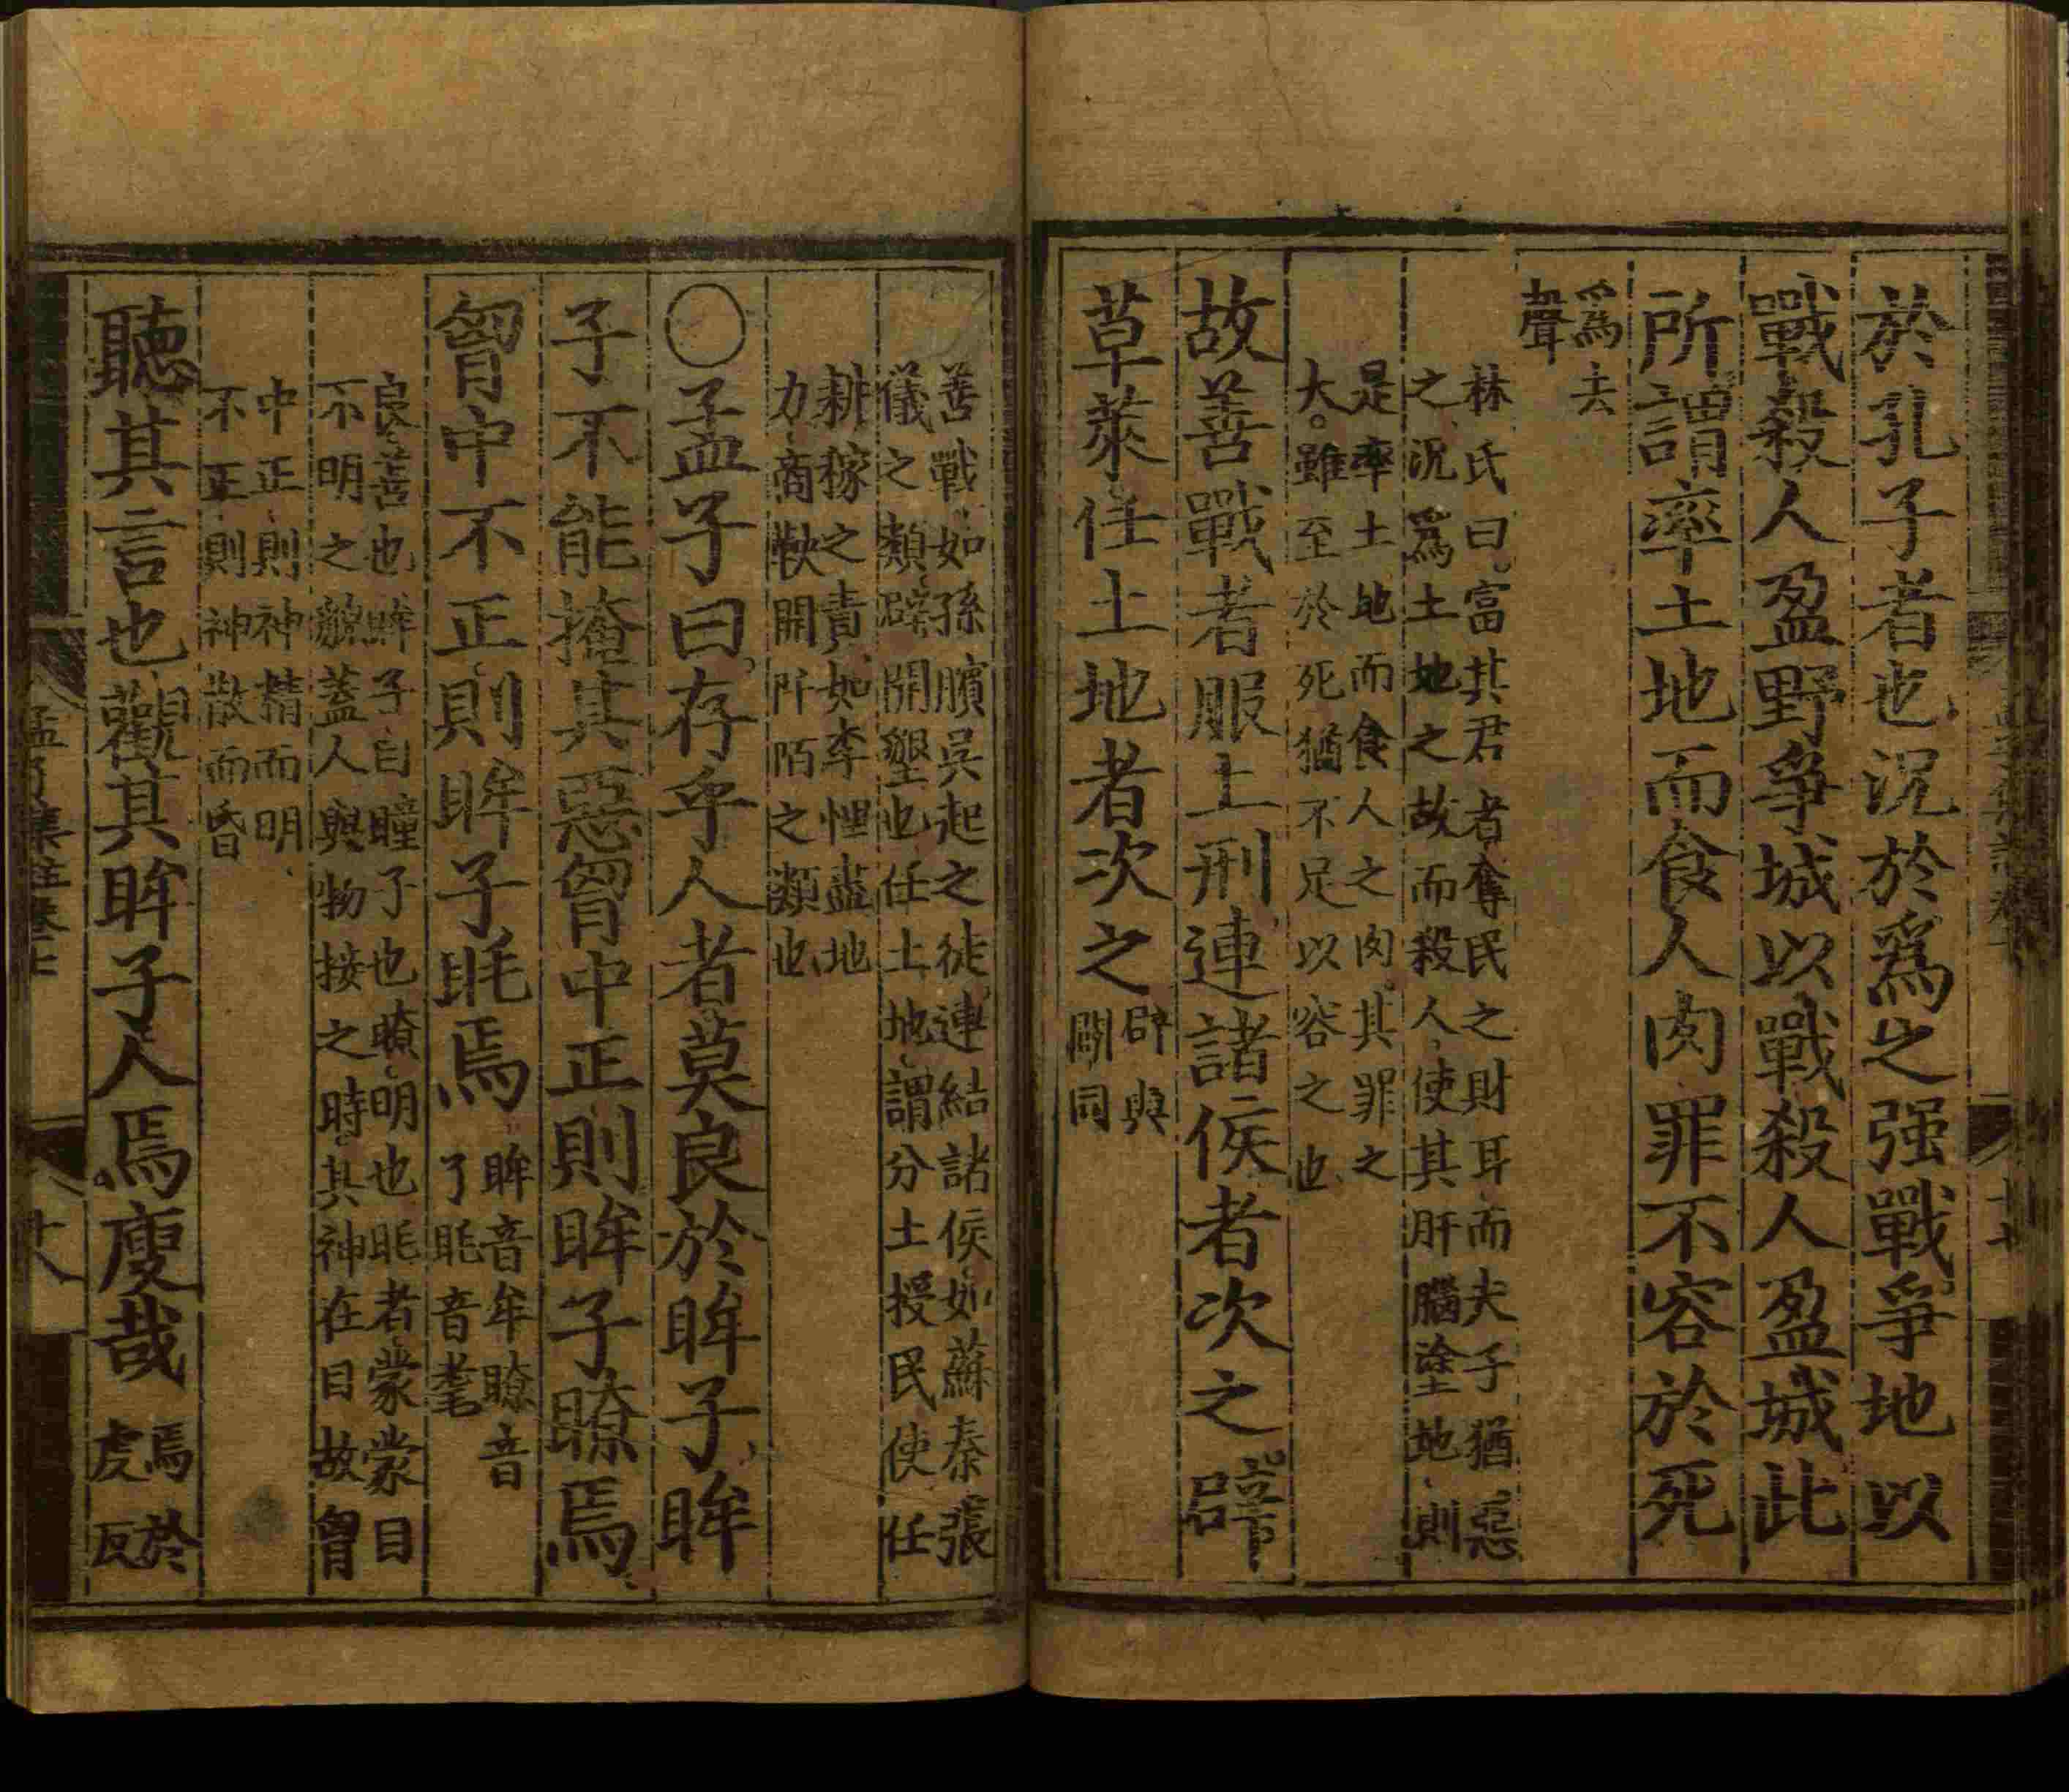 於孔子者也况於爲之强戰爭地以
戰殺人盈野爭城以戰殺人盈城此
所謂率土地而食人肉罪不容於死
爲去
聲
林氏曰富其君者奪民之財耳而夫子猶惡
之況爲土地之故而殺人使其肝腦塗地則
是率土地而食人之肉其罪之
大雖至於死猶不足以容之也
故善戰者服上刑連諸侯者次之辟
草萊任土地者次之
辟與
闢同
善戰如孫臏吳起之徒連結諸侯如蘇秦張
儀之類辟開墾也任土地謂分土授民使任
耕稼之責如李悝盡地
力商鞅開阡陌之類也
○孟子曰存乎人者莫良於眸子眸
子不能掩其惡胷中正則眸子瞭焉
胷中不正則眸子眊焉
眸音牟瞭音
了眊音耄
良善也眸子目瞳子也瞭明也眊者蒙蒙目
不明之貌蓋人與物接之時其神在目故胷
中正則神精而明
不正則神散而昏
聽其言也觀其眸子人焉廋哉
焉於
虔反
孟子集註卷七
十八